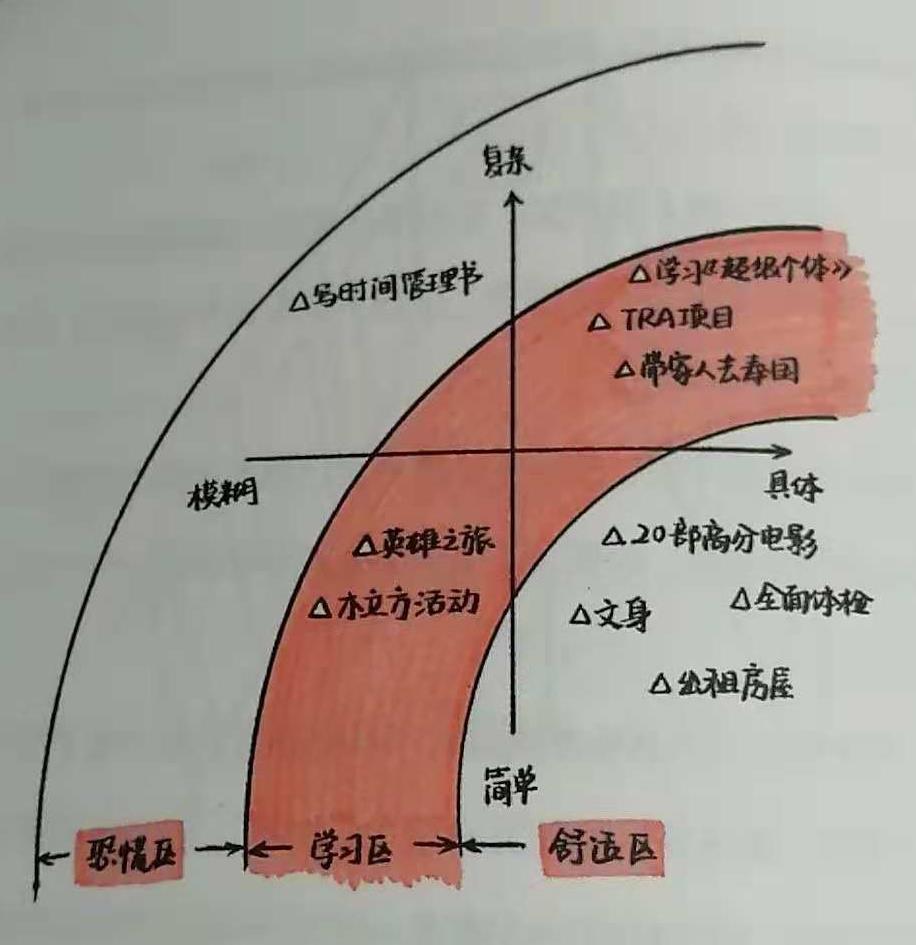 复杂
△写时间管理书
△学习《超级个体》
△ TRA项目
△带家人去泰国
模糊
具体
△英雄之旅
△木立方活动
△20部高分电影
△文身
△全面体检
△出租房屋
简单
恐惧区
学习区
舒适区